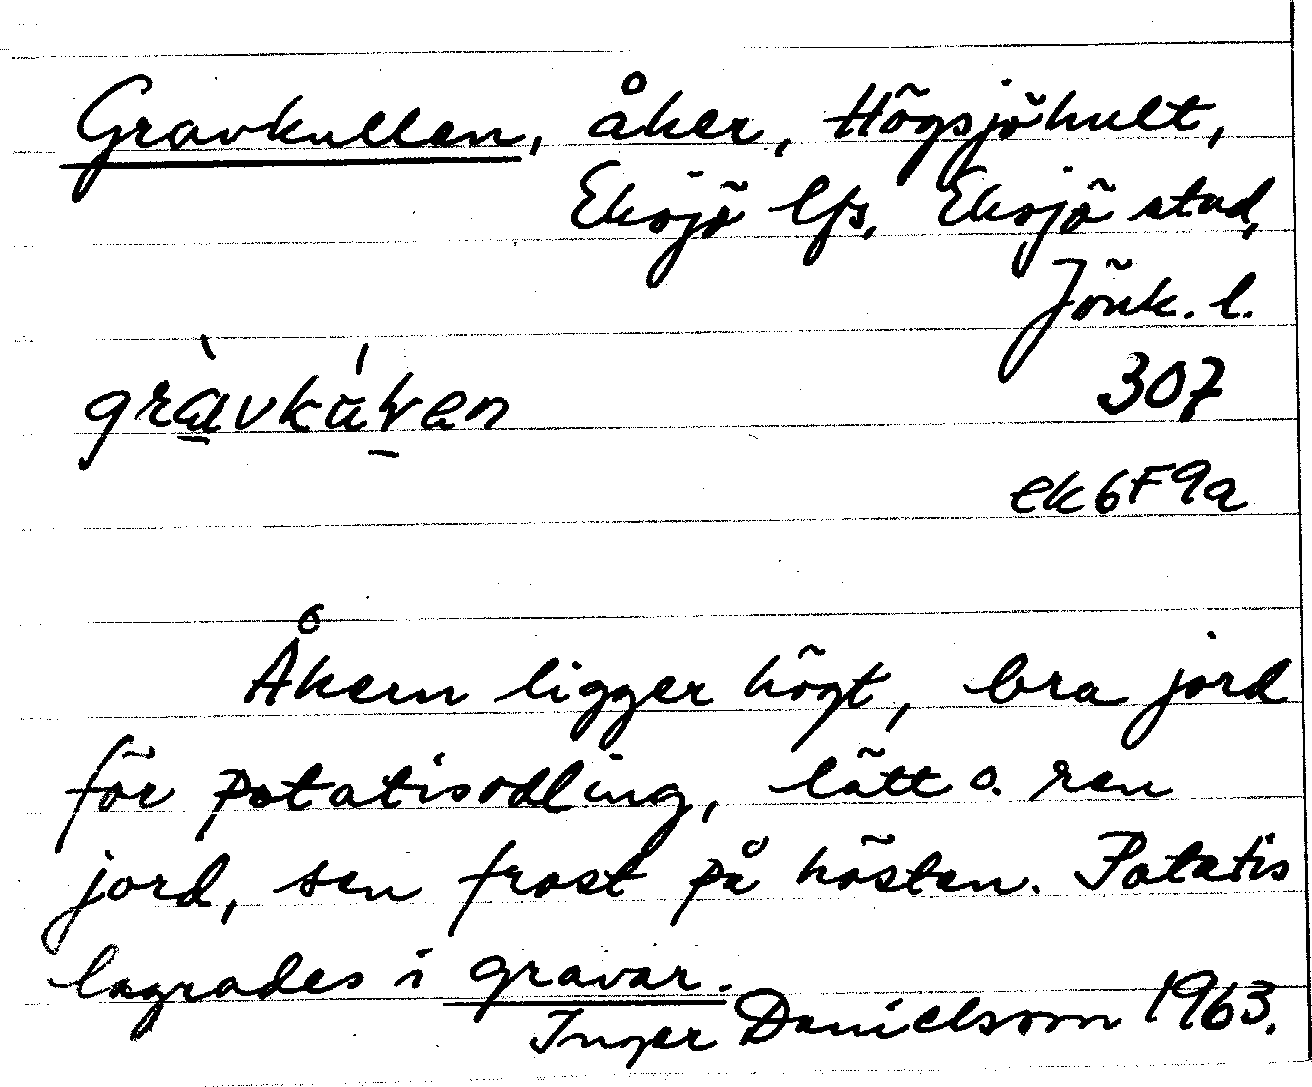 Gravkullen, åker, Högsjöhult,
Eksjö lfs, Eksjö stad,
Jönk. l.
307
ek6F9a
Åkern ligger högt, bra jord
för potatisodling, lätt o. ren
jord, sen frost på hösten. Potatis
lagrades i gravar.
Inger Danielsson 1963.